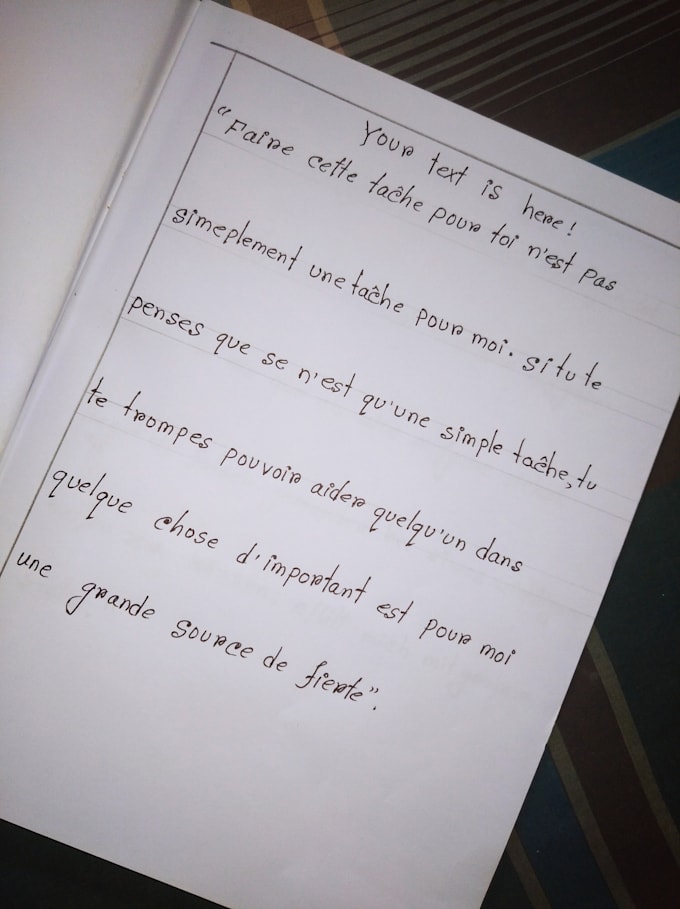 Your text is here!
"Faire cette taĉhe pour toi n'est pas
simeplement une taĉhe pour moi. si tu te
penses que se n'est qu'une simple taĉhe, tu
te trompes pouvoir aider quelqu'un dans
quelque chose d'important est pour moi
une grande source de fierte".